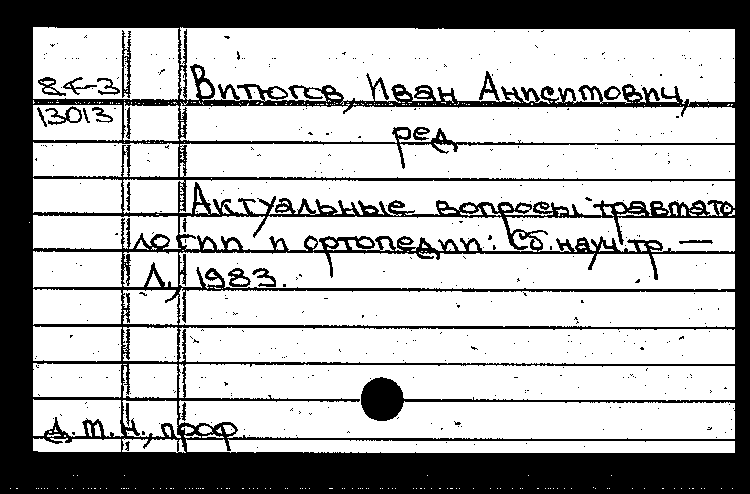 84-3 Витюгов, Иван Анисимович,
13013
ред
Актуальные вопросы травмато
логии и ортопедии: Сб. науч. тр. —
Л., 1983.
д. т. н., проф.